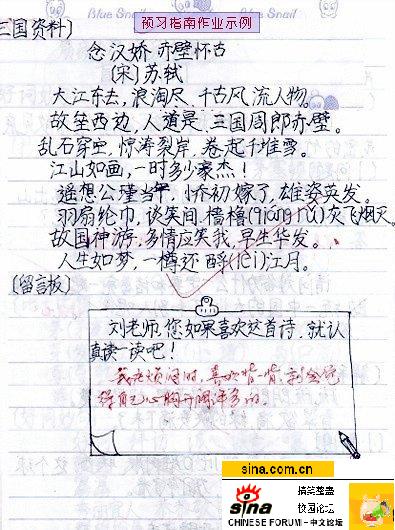 Blue Snail
预习指南作业示例
Blue Snail
三国资料）
念汉娇 赤壁怀古
〔宋〕苏轼
大江东去，浪淘尽、千古风流人物。
故垒西边，人道是、三国周郎赤壁。
乱石穿空，惊涛裂岸，卷起千堆雪。
江山如画，一时多少豪杰！
遥想公瑾当年，小乔初嫁了，雄姿英发。
羽扇纶巾，谈笑间、樯橹(qiáng rǔ)灰飞烟灭。
故国神游，多情应笑我，早生华发。
人生如梦，一樽还酹(lèi)江月。
〔留言板〕
刘老师，您如果喜欢这首诗，就认
真读一读吧！
我在烦闷时，喜欢背一背，就会觉
得自己心胸开阔许多的。
sina.com.cn
sina
搞笑整蛊
校园论坛
CHINESE FORUM - 中文论坛